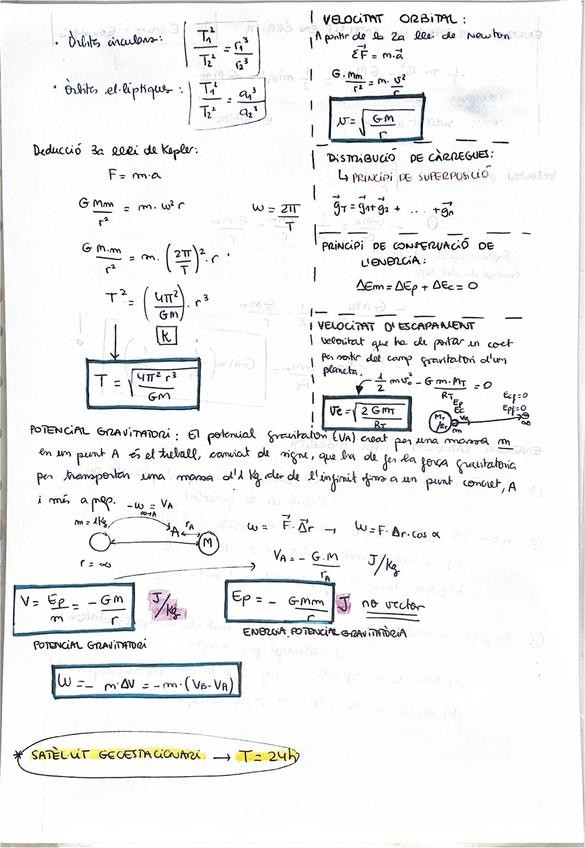 · Òrbites circulars: T₁²/T₂² = r₁³/r₂³
· Òrbites el·líptiques: T₁²/T₂² = a₁³/a₂³
Deducció 3a llei de Kepler:
F = m·a
G Mm/r² = m·ω²r    ω = 2π/T
G M·m/r² = m·(2π/T)²·r
T² = (4π²/GM)·r³
K
T = √(4π² r³/GM)
VELOCITAT ORBITAL:
A partir de la 2a llei de Newton
ΣF⃗ = m·a⃗
G·Mm/r² = m·v²/r
v = √(GM/r)
DISTRIBUCIÓ DE CÀRREGUES:
↳ PRINCIPI DE SUPERPOSICIÓ
g⃗T = g⃗1 + g⃗2 + ... + g⃗n
PRINCIPI DE CONSERVACIÓ DE
L'ENERGIA:
ΔEm = ΔEp + ΔEc = 0
VELOCITAT D'ESCAPAMENT
Velocitat que ha de portar un coet
per sortir del camp gravitatori d'un
planeta.
½ mv₀² - G m·MT/RT = 0
Ve = √(2GMT/RT)
Ep
Ec
Ecf=0
Epf=0
MT
m
∞
POTENCIAL GRAVITATORI: El potencial gravitatori (VA) creat per una massa m
en un punt A és el treball, canviat de signe, que ha de fer la força gravitatòria
per transportar una massa d'1 kg des de l'infinit fins a un punt concret, A
i més a prop.
-W∞→A = VA
m = 1kg
A
rA
M
r = ∞
W = F⃗·Δ⃗r → W = F·Δr·cos α
VA = - G·M/rA    J/kg
V = Ep/m = - GM/r    J/kg
POTENCIAL GRAVITATORI
Ep = - GMm/r    J    no vector
ENERGIA POTENCIAL GRAVITATÒRIA
W = - m·ΔV = -m·(VB-VA)
* SATÈL·LIT GEOESTACIONARI → T = 24h